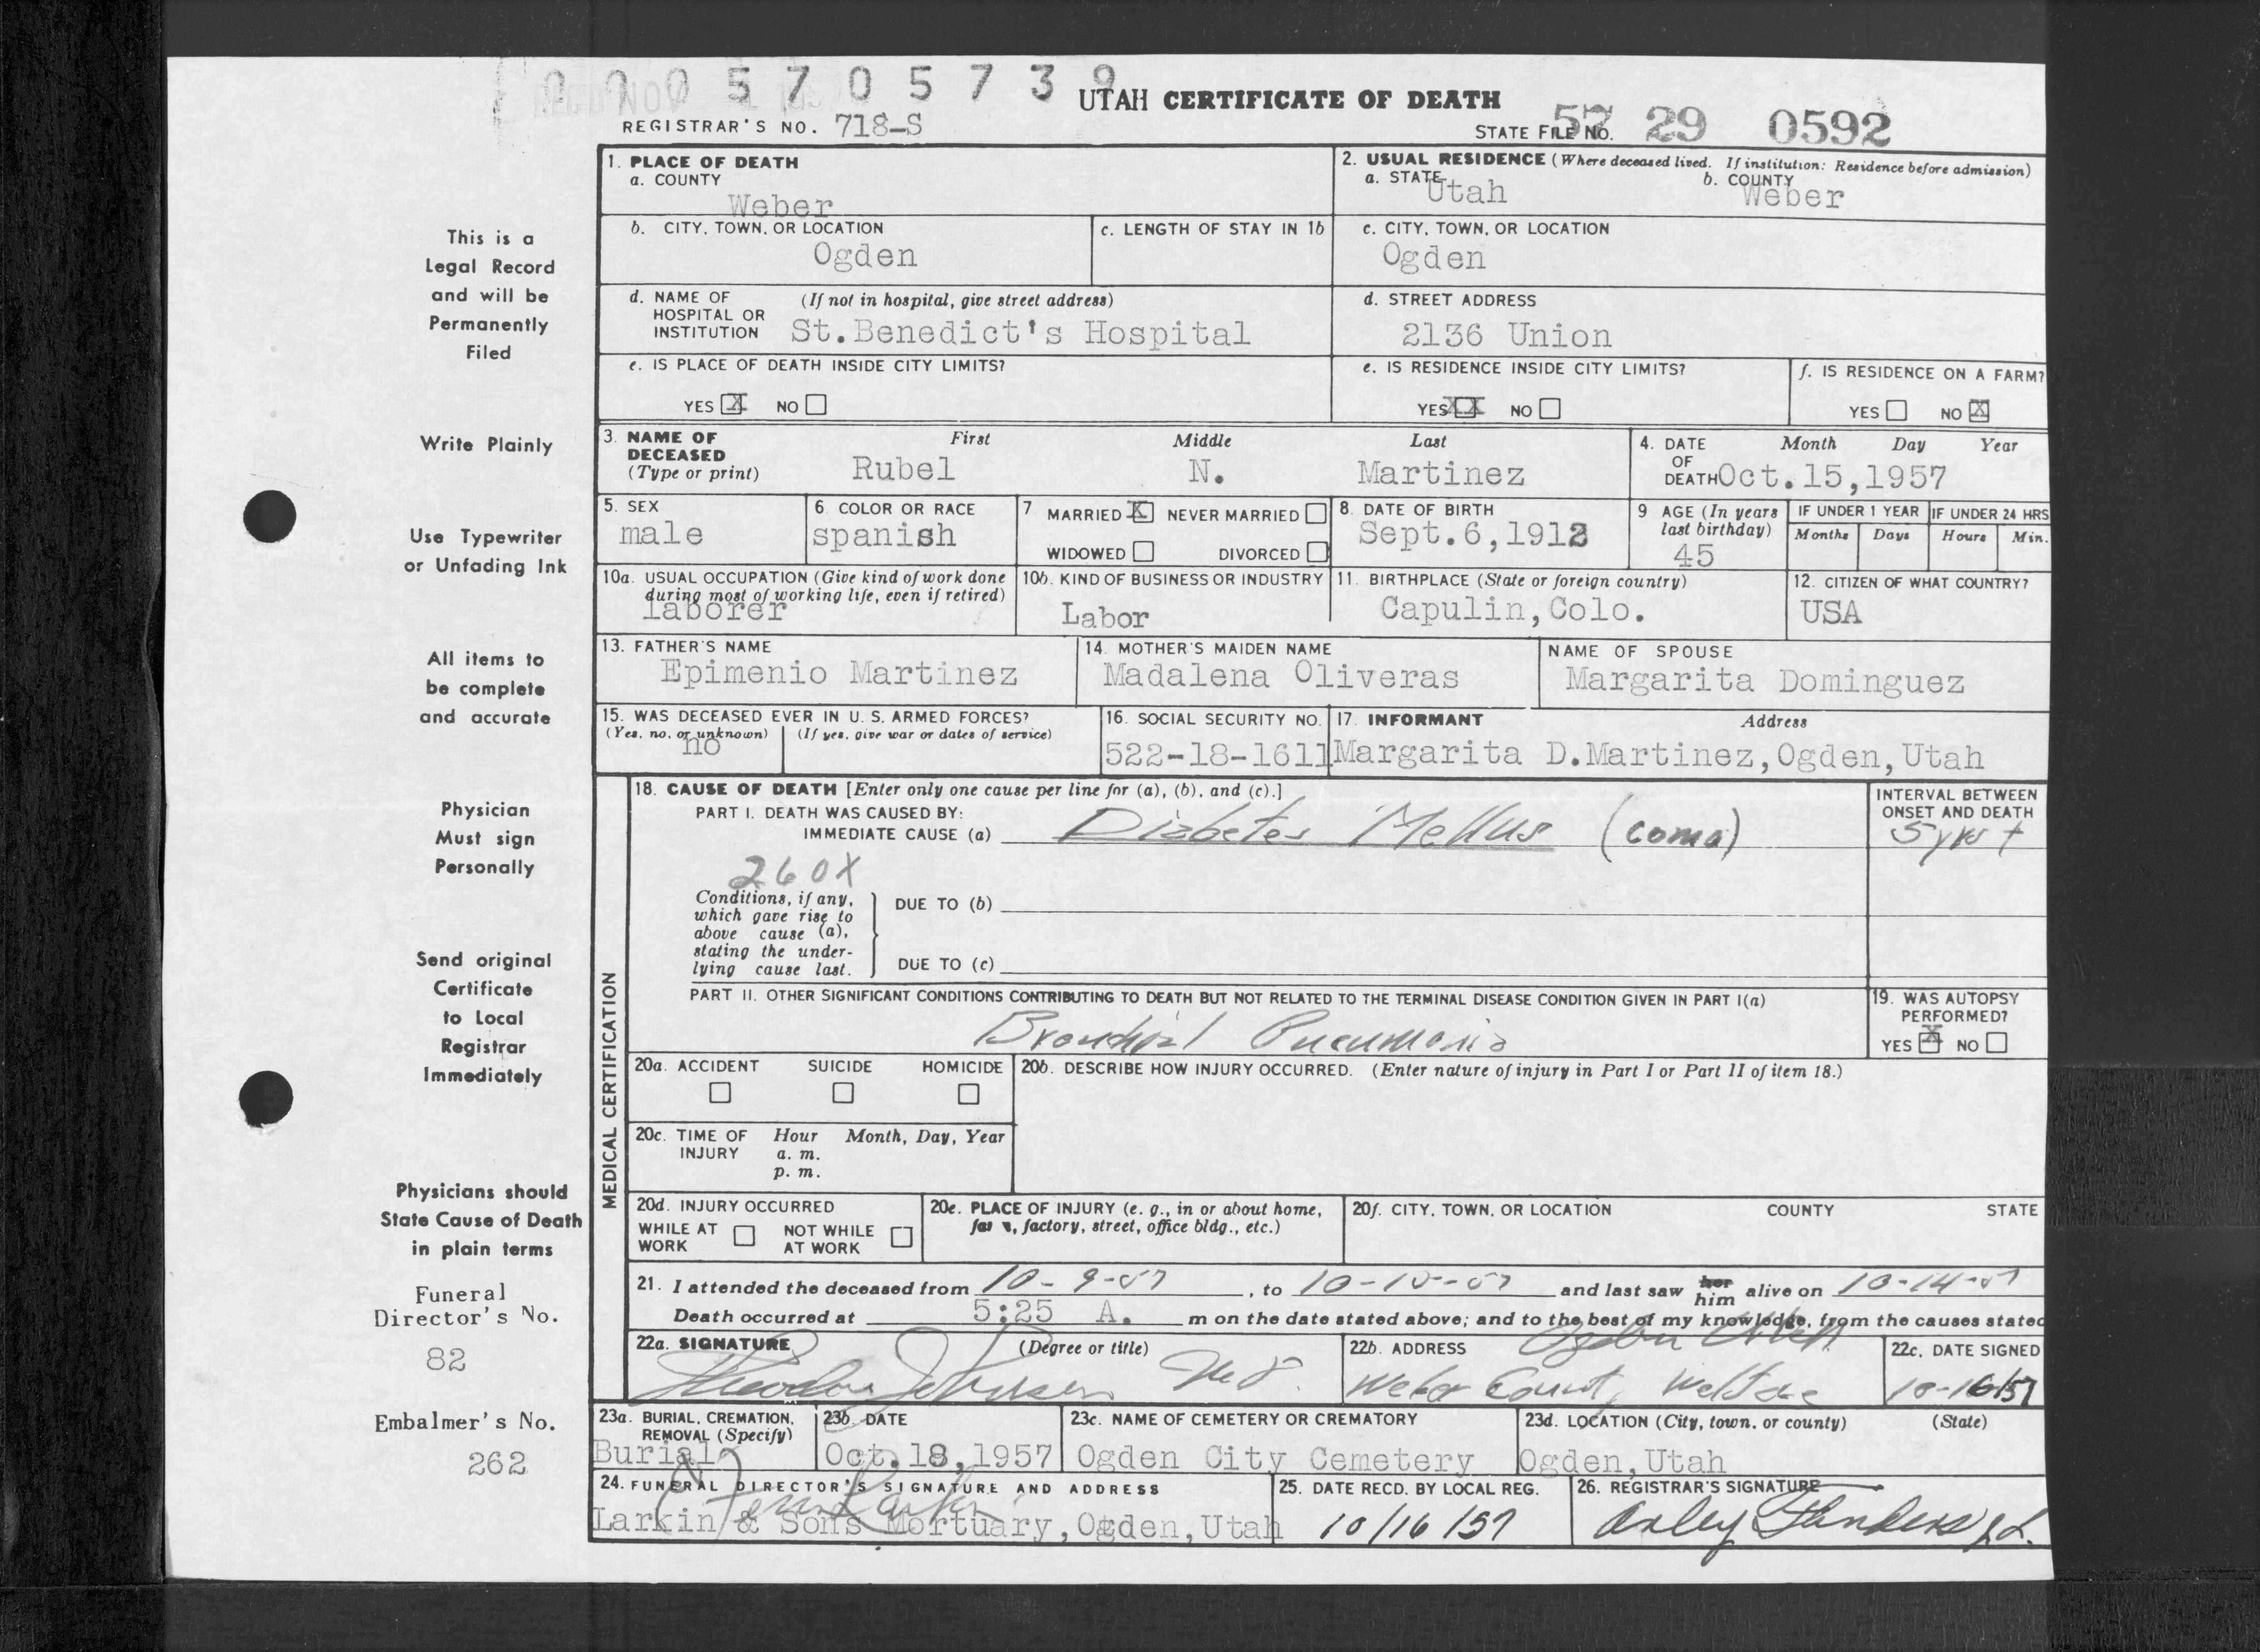 0005705739
UTAH CERTIFICATE OF DEATH
REGISTRAR'S NO. 718-S
STATE FILE NO. 57 29 0592
1. PLACE OF DEATH
a. COUNTY
Weber
2. USUAL RESIDENCE (Where deceased lived. If institution: Residence before admission)
a. STATE Utah b. COUNTY Weber
b. CITY, TOWN, OR LOCATION
Ogden
c. LENGTH OF STAY IN 1b
c. CITY, TOWN, OR LOCATION
Ogden
d. NAME OF HOSPITAL OR INSTITUTION (If not in hospital, give street address)
St.Benedict's Hospital
d. STREET ADDRESS
2136 Union
e. IS PLACE OF DEATH INSIDE CITY LIMITS?
YES X NO
e. IS RESIDENCE INSIDE CITY LIMITS?
YES XX NO
f. IS RESIDENCE ON A FARM?
YES NO X
3. NAME OF DECEASED (Type or print)
First Middle Last
Rubel N. Martinez
4. DATE OF DEATH Month Day Year
Oct.15,1957
5. SEX
male
6 COLOR OR RACE
spanish
7 MARRIED X NEVER MARRIED
WIDOWED DIVORCED
8. DATE OF BIRTH
Sept.6,1912
9 AGE (In years last birthday)
45
IF UNDER 1 YEAR
Months Days
IF UNDER 24 HRS
Hours Min.
10a. USUAL OCCUPATION (Give kind of work done during most of working life, even if retired)
laborer
10b. KIND OF BUSINESS OR INDUSTRY
Labor
11. BIRTHPLACE (State or foreign country)
Capulin,Colo.
12. CITIZEN OF WHAT COUNTRY?
USA
13. FATHER'S NAME
Epimenio Martinez
14. MOTHER'S MAIDEN NAME
Madalena Oliveras
NAME OF SPOUSE
Margarita Dominguez
15. WAS DECEASED EVER IN U. S. ARMED FORCES?
(Yes, no, or unknown) (If yes, give war or dates of service)
no
16. SOCIAL SECURITY NO.
522-18-1611
17. INFORMANT Address
Margarita D.Martinez,Ogden,Utah
MEDICAL CERTIFICATION
18. CAUSE OF DEATH [Enter only one cause per line for (a), (b), and (c).]
PART I. DEATH WAS CAUSED BY:
IMMEDIATE CAUSE (a) Diabetes Mellus (coma)
INTERVAL BETWEEN ONSET AND DEATH
5 yrs +
260X
Conditions, if any, which gave rise to above cause (a), stating the underlying cause last.
DUE TO (b)
DUE TO (c)
PART II. OTHER SIGNIFICANT CONDITIONS CONTRIBUTING TO DEATH BUT NOT RELATED TO THE TERMINAL DISEASE CONDITION GIVEN IN PART I(a)
Bronchial Pneumonia
19. WAS AUTOPSY PERFORMED?
YES X NO
20a. ACCIDENT SUICIDE HOMICIDE
20b. DESCRIBE HOW INJURY OCCURRED. (Enter nature of injury in Part I or Part II of item 18.)
20c. TIME OF INJURY Hour Month, Day, Year
a. m.
p. m.
20d. INJURY OCCURRED
WHILE AT WORK NOT WHILE AT WORK
20e. PLACE OF INJURY (e. g., in or about home, farm, factory, street, office bldg., etc.)
20f. CITY, TOWN, OR LOCATION COUNTY STATE
21. I attended the deceased from 10-9-57, to 10-15-57 and last saw her him alive on 10-14-57
Death occurred at 5:25 A. m on the date stated above; and to the best of my knowledge, from the causes stated
22a. SIGNATURE (Degree or title)
Theodore Johnson M.D.
22b. ADDRESS
Ogden Utah
Weber County Welfare
22c. DATE SIGNED
10-16/57
23a. BURIAL, CREMATION, REMOVAL (Specify)
Burial
23b. DATE
Oct.18,1957
23c. NAME OF CEMETERY OR CREMATORY
Ogden City Cemetery
23d. LOCATION (City, town, or county) (State)
Ogden,Utah
24. FUNERAL DIRECTOR'S SIGNATURE AND ADDRESS
Larkin & Sons Mortuary,Ogden,Utah
25. DATE RECD. BY LOCAL REG.
10/16/57
26. REGISTRAR'S SIGNATURE
This is a
Legal Record
and will be
Permanently
Filed
Write Plainly
Use Typewriter
or Unfading Ink
All items to
be complete
and accurate
Physician
Must sign
Personally
Send original
Certificate
to Local
Registrar
Immediately
Physicians should
State Cause of Death
in plain terms
Funeral
Director's No.
82
Embalmer's No.
262